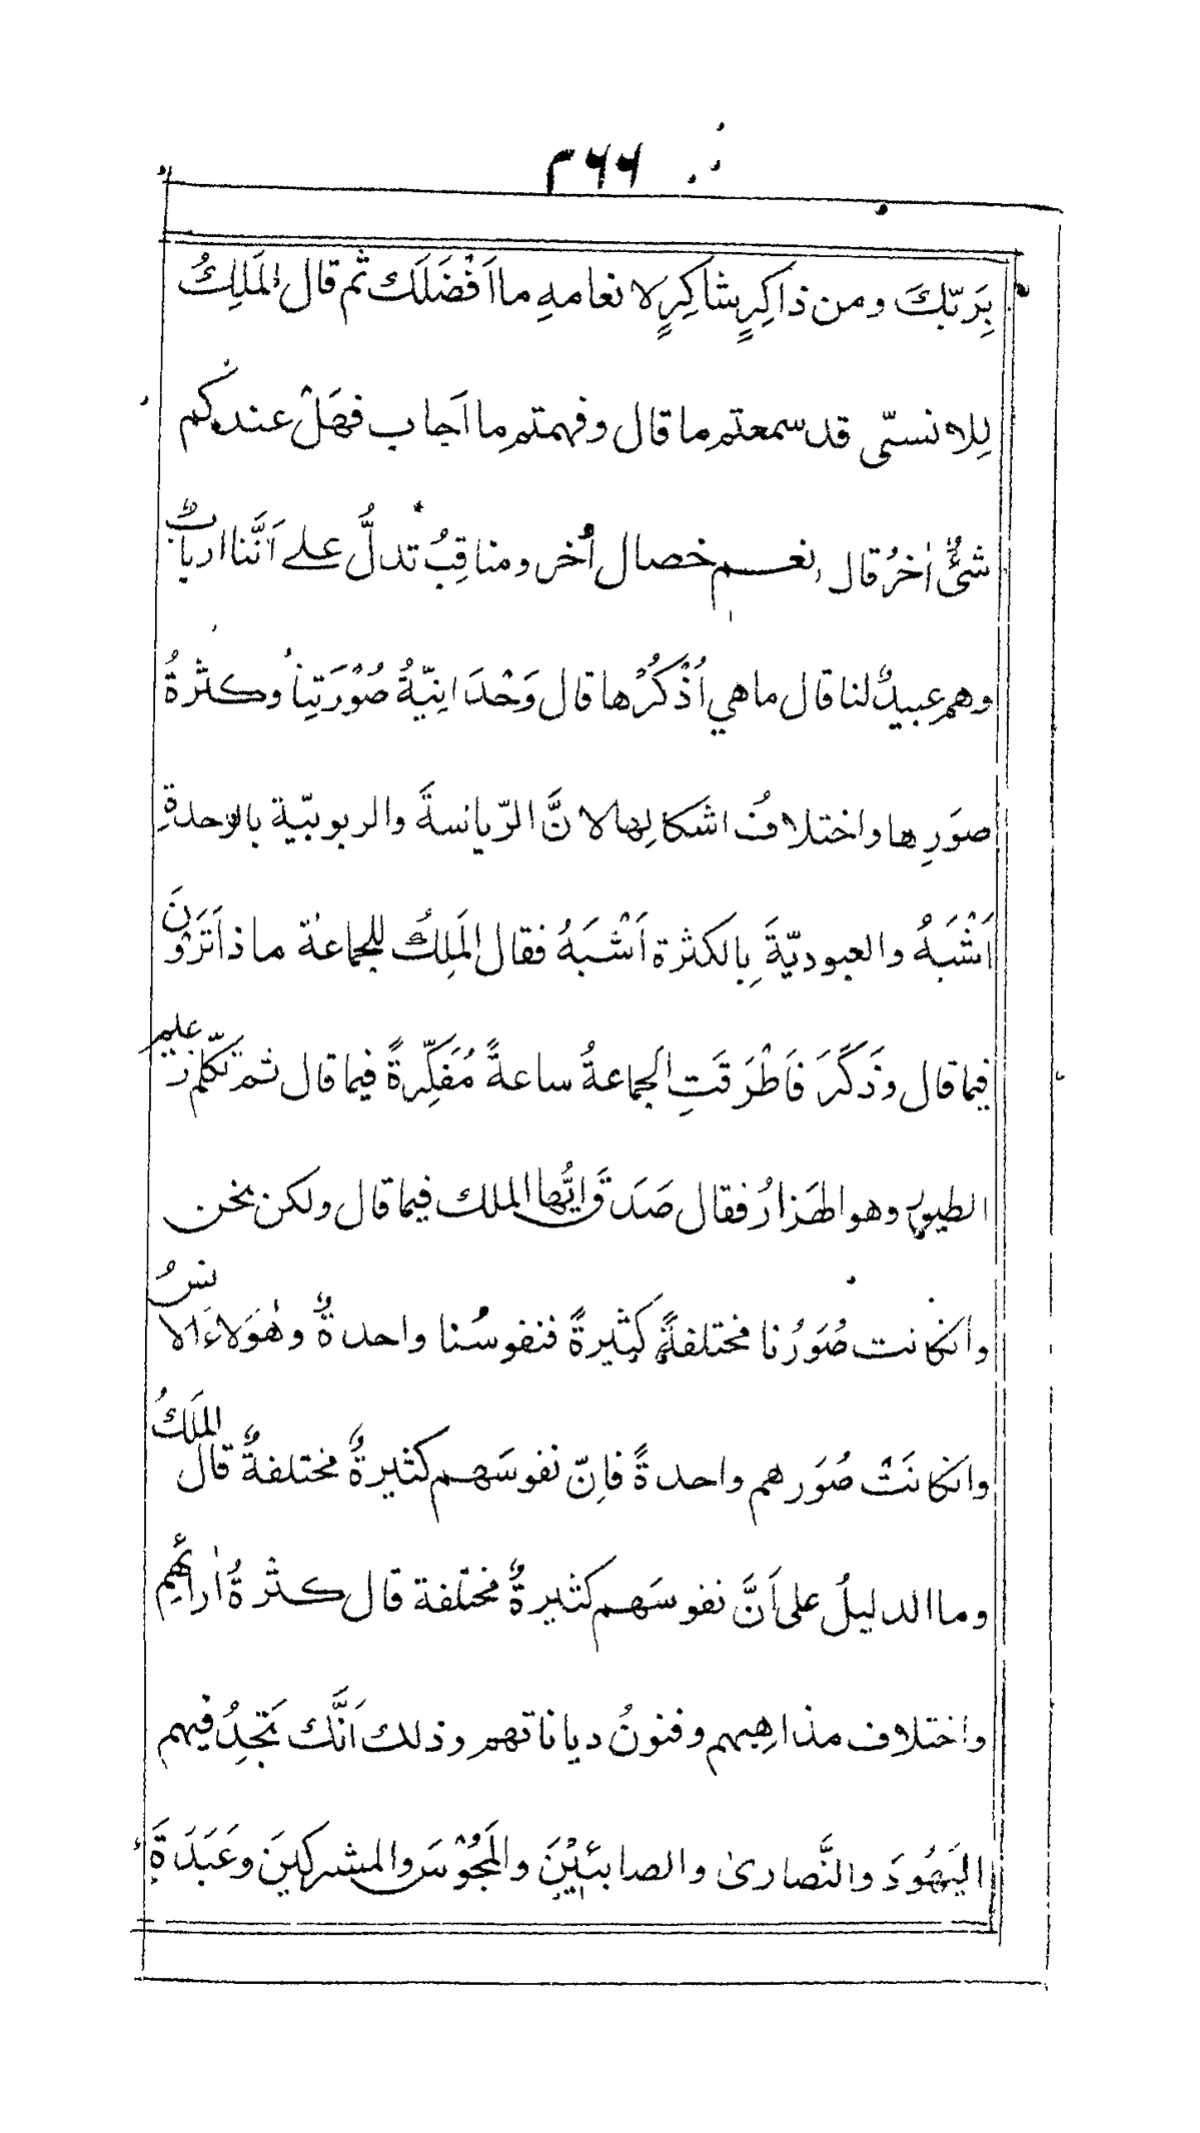 ٣٦٦
بِرَبّكَ ومن ذاكِرٍ شاكِرٍ لانعامهِ ما اَفْضَلَكَ ثم قال المَلِكُ
لِلانسىّ قد سمعتم ما قال وفهمتم ما اَجاب فهَلْ عندكم
شئٌ اٰخرُ قال نعم خصال اُخر ومناقبُ تدلُّ على اَنَّنا اربابٌ
وهم عبيدٌ لنا قال ما هي اُذْكُرْها قال وَحْدَانِيّةُ صُوْرَتِنا وكثرةُ
صوَرِها واختلافُ اشكالِها لانَّ الرّياسةَ والربوبيّة بالوحدةِ
اَشْبَهُ والعبوديّةَ بِالكثرة اَشْبَهُ فقال المَلِكُ للجماعة ماذا تَرَوْنَ
فيما قال وذَكَرَ فَاَطْرَقَتِ الجماعةُ ساعةً مُفَكِّرةً فيما قال ثم تكلّم زعيم
الطيور وهو الهَزارُ فقال صَدَقَ ايُّها الملك فيما قال ولكن نحن
وانكانت صُوَرُنا مختلفةً كَثيرةً فنفوسُنا واحدةٌ وهٰؤلاءِ الانسُ
وانكانَتْ صُوَرهم واحدةً فاِنّ نفوسَهم كثيرةٌ مختلفةٌ قال الملكُ
وما الدليلُ على اَنَّ نفوسَهم كثيرةٌ مختلفة قال كثرةُ اٰرائِهِم
واختلاف مذاهِبهم وفنونُ دياناتهم وذلك اَنَّك تَجِدُ فيهم
اليَهُودَ والنَّصارىٰ والصابئِيْنَ والمَجُوْسَ والمشركِينَ وعَبَدَةَ